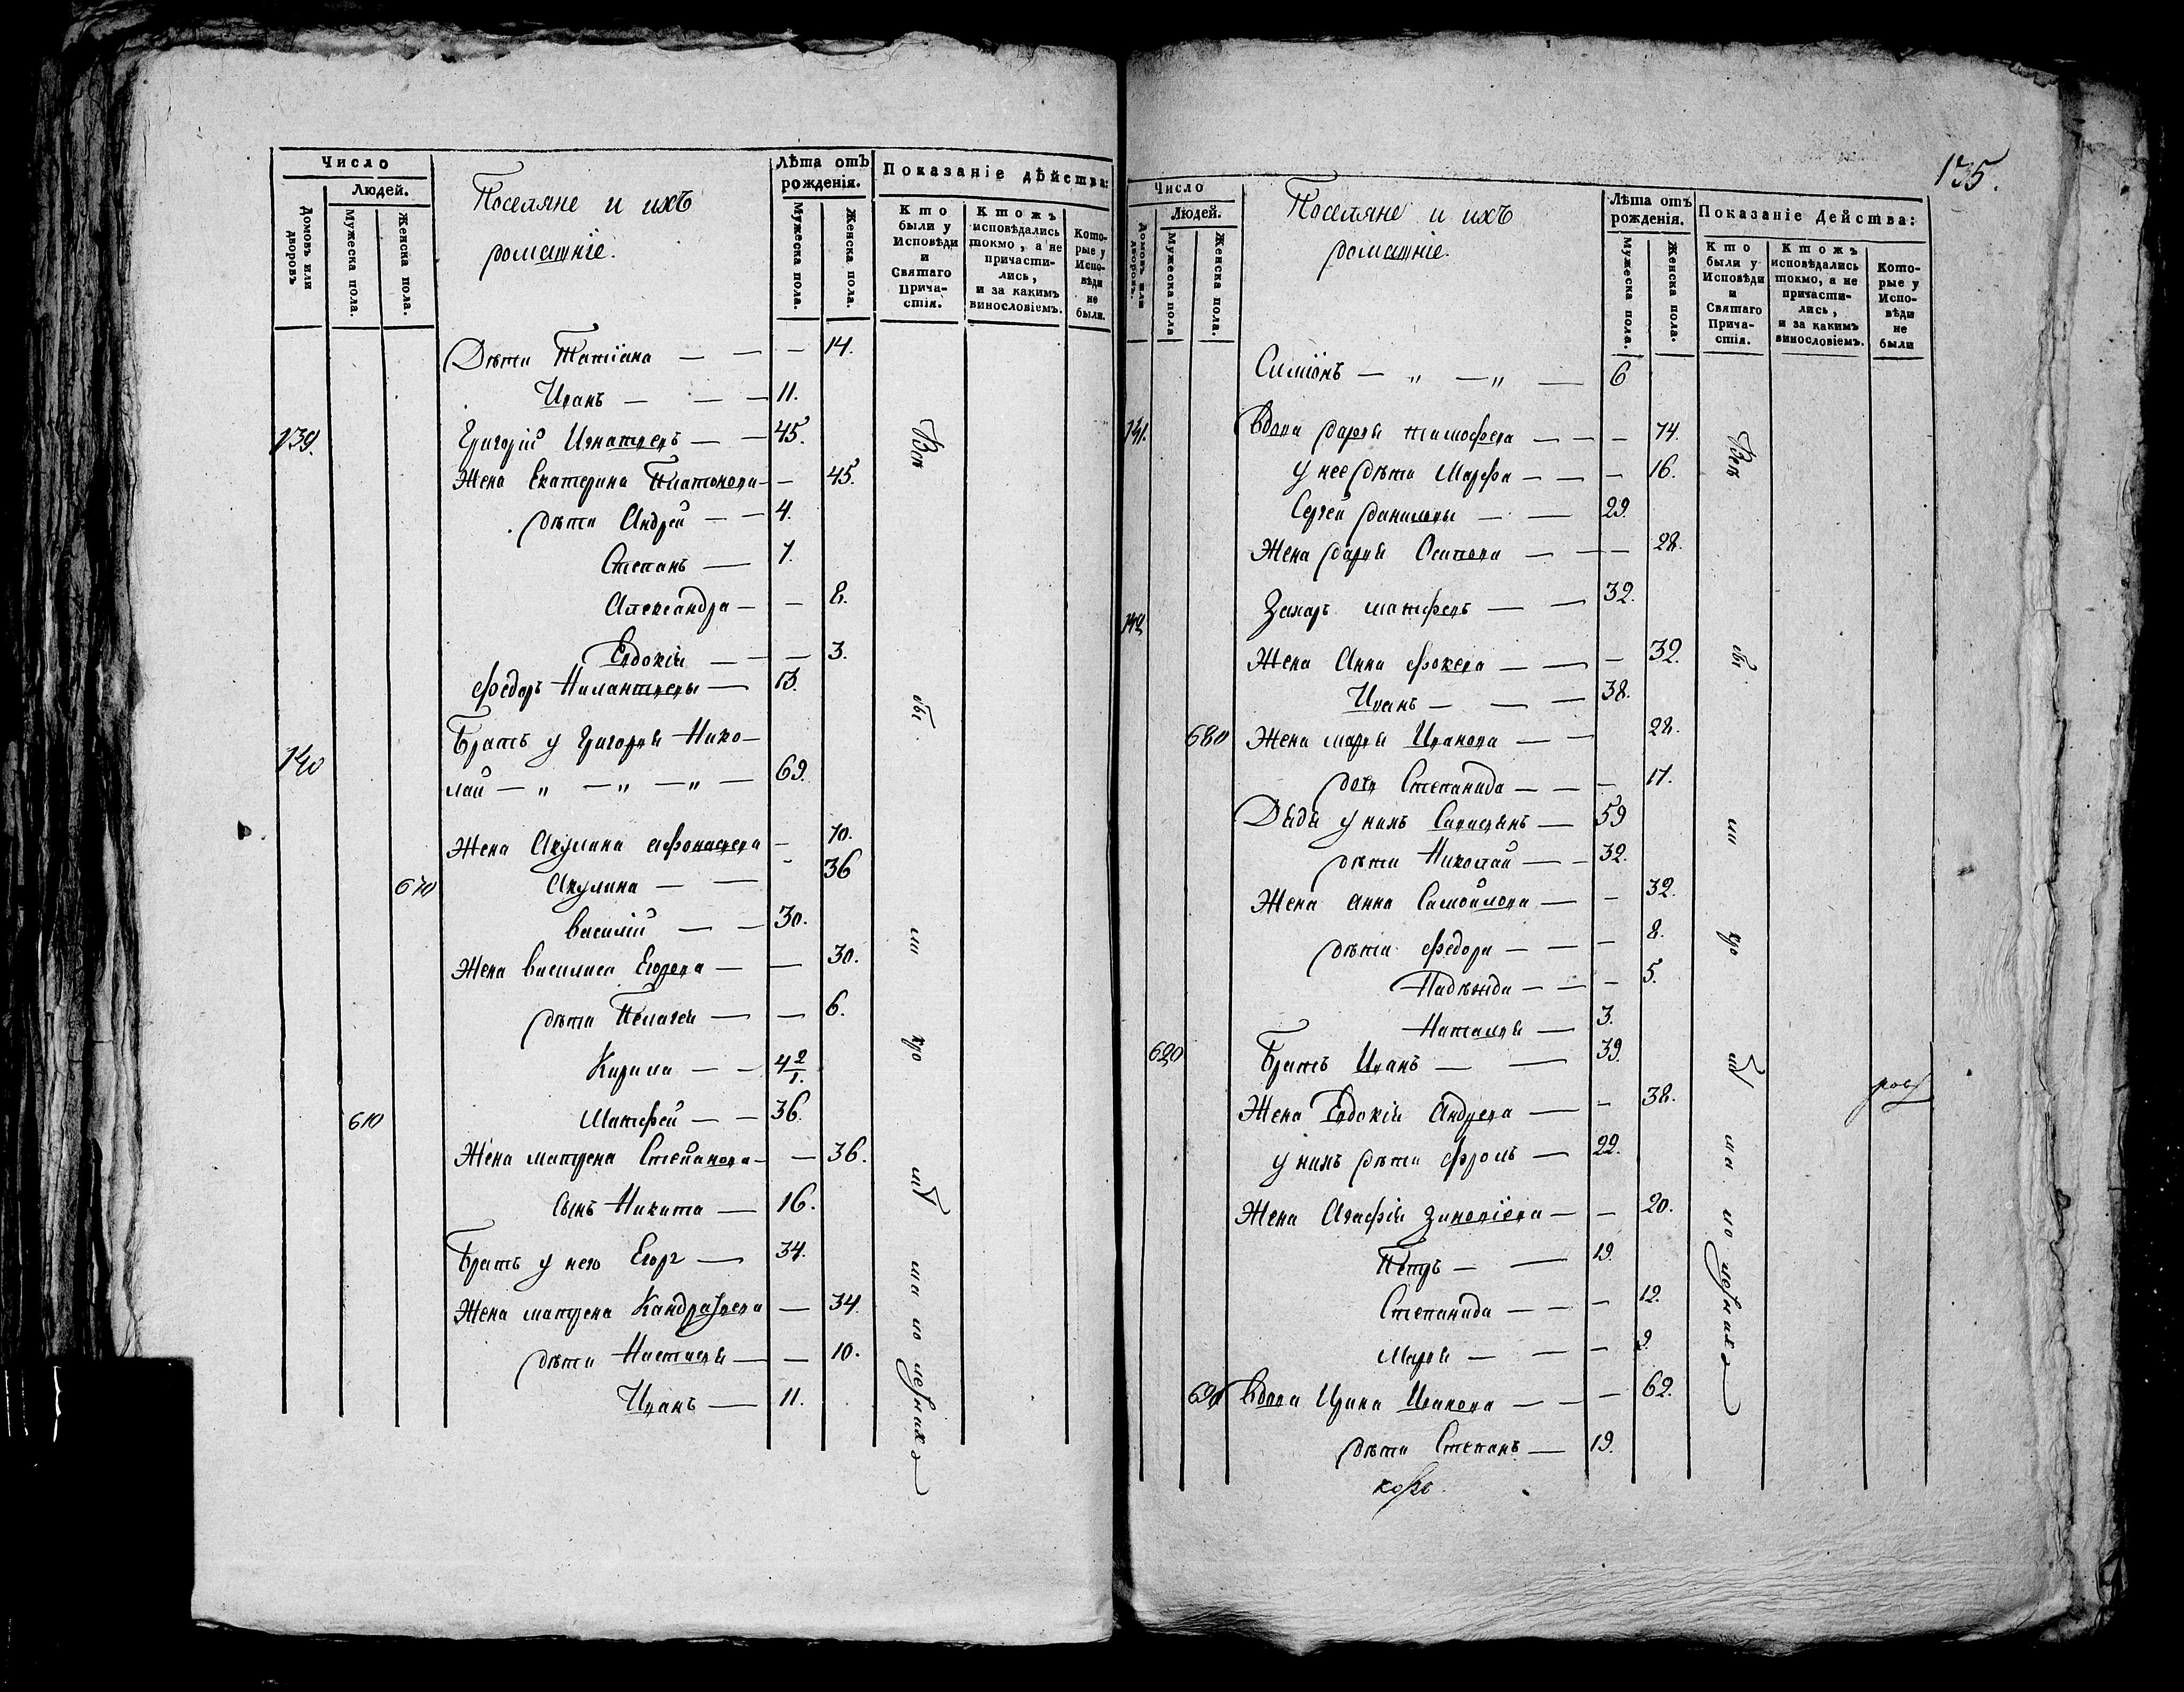 Число
Людей.
Домовъ или дворовъ
Мужеска пола.
Женска пола.
Поселяне и ихъ
домашніе.
Лѣта отъ
рожденія.
Мужеска пола.
Женска пола.
Показаніе дѣйства:
Кто были у Исповѣди и Святаго Прича-стія.
Ктожъ исповѣдались токмо, а не причасти-лись, и за какимъ винословіемъ.
Кото-рые у Испо-вѣди не были.
Дѣти Татіана — — — 14.
Иванъ — — — 11.
139. Григорій Игнатьевъ — — 45.
Жена Екатерина Платонова — — 45.
дѣти Андрей — — 4.
Степанъ — 7.
Александра — — 8.
Евдокія — — — 3.
Федоръ — 13.
140 Братъ у Григорья Нико-
лай — „ — „ — „ — 69.
Жена Акулина Афонасьева — 70.
670 Акулина — — - 36
Василій — — 30.
Жена Василиса Егорева — — 30.
дѣти Пелагея — — 6.
Кирила — — 4 2/1.
610 Матфей — — 36.
Жена матрена Степанова — — 36.
сынъ Никита — 16.
Братъ у него Егоръ — 34.
Жена матрена Кандратьева — 34.
дѣти Настасья — — 10.
Иванъ — 11.
Всѣ
135.
Число
Людей.
Домовъ или дворовъ.
Мужеска пола
Женска пола.
Поселяне и ихъ
домашніе.
Лѣта отъ
рожденія.
Мужеска пола.
Женска пола.
Показаніе Дейсшва:
Кто были у Исповѣди и Святаго Прича-стія.
Ктожъ исповѣдались токмо, а не причасти-лись, и за какимъ винословіемъ.
Кото-рые у Испо-вѣди не были
Симіонъ — „ — „ — 6
141. Вдова Дарья тимофева — — — 74.
у нее дѣти Марфа — — — 16.
Сергей Даниловы — — 29.
Жена Дарья Осипова — — — 28.
142 Захаръ матфевъ — — 32.
Жена Анна Фокева — — — 32.
Иванъ — — — 38.
680 Жена марья Иванова — — 28.
дочь Степанида — — — 17.
Дядя у нихъ — 59
дѣти Николай — — 32.
Жена анна Самойлова — — 32.
дѣти Федора — — — 8.
Надѣжда — — — 5.
Наталья — 3.
620 Братъ Иванъ — — 39.
Жена Евдокія Андрева — — 38.
у нихъ дѣти Фролъ — 22.
Жена Агафія Зиновіева — — 20.
Петръ — — 19.
Степанида — — — 12.
Марья — — — 9.
690 Вдова Ирина Иванова — — — 62.
дѣти Степанъ — 19.
Всѣ